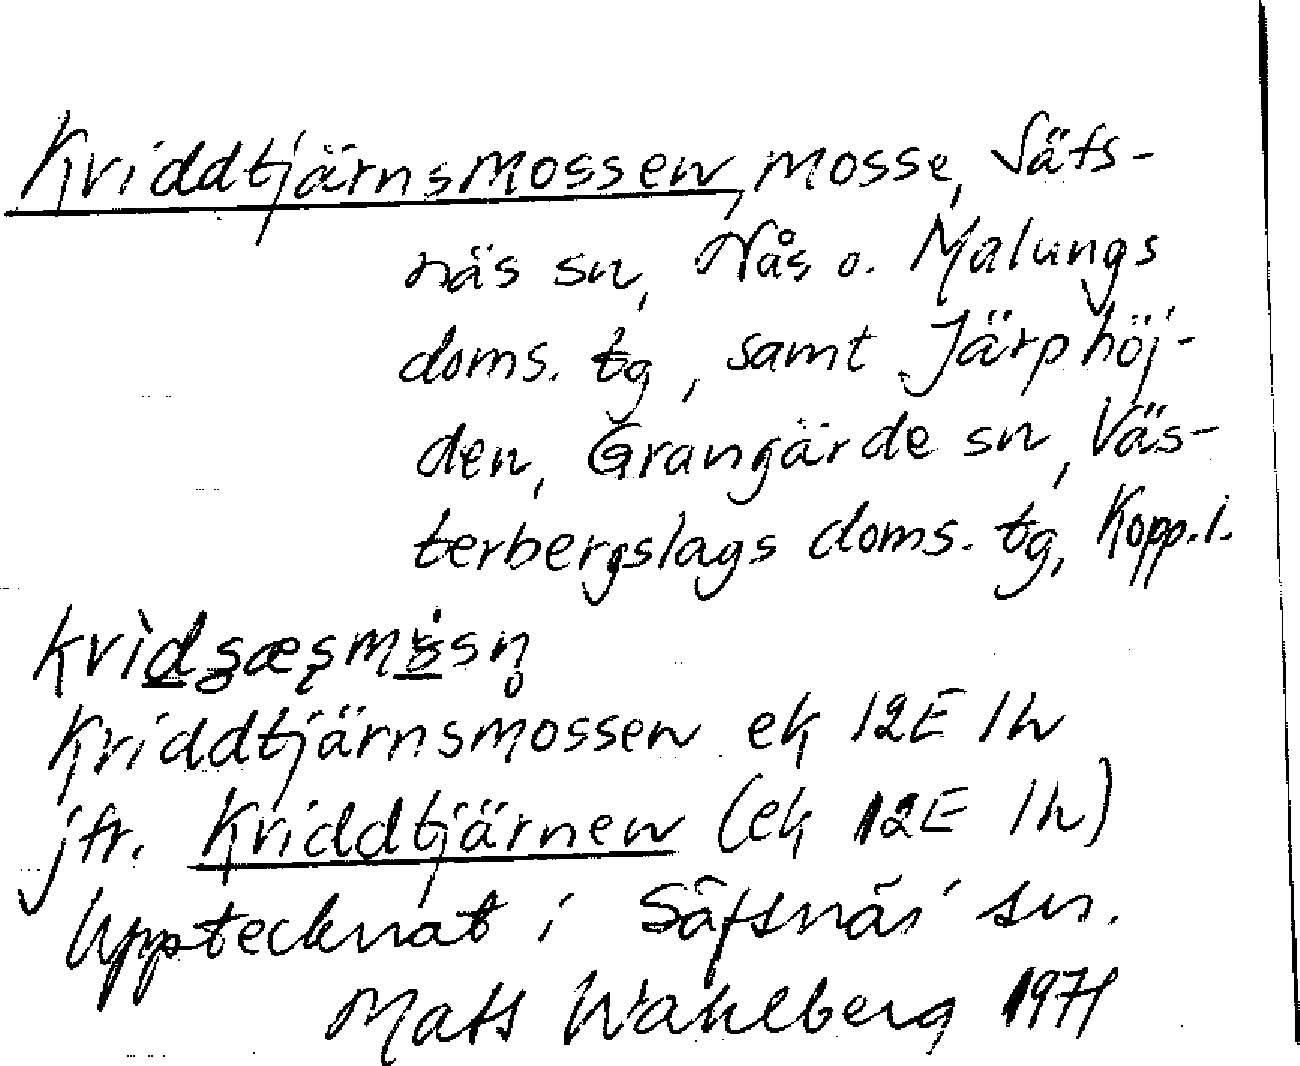 Kriddtjärnsmossen, mosse, Säfs-
näs sn, Nås o. Malungs
doms. tg, samt Järphöj-
den, Grangärde sn, Väs-
terbergslags doms. tg, Kopp. l.
Kriddtjärnsmossen ek 12E 1h
jfr. Kriddtjärnen (ek 12E 1h)
Upptecknat i Säfsnäs sn.
Mats Wahlberg 1971